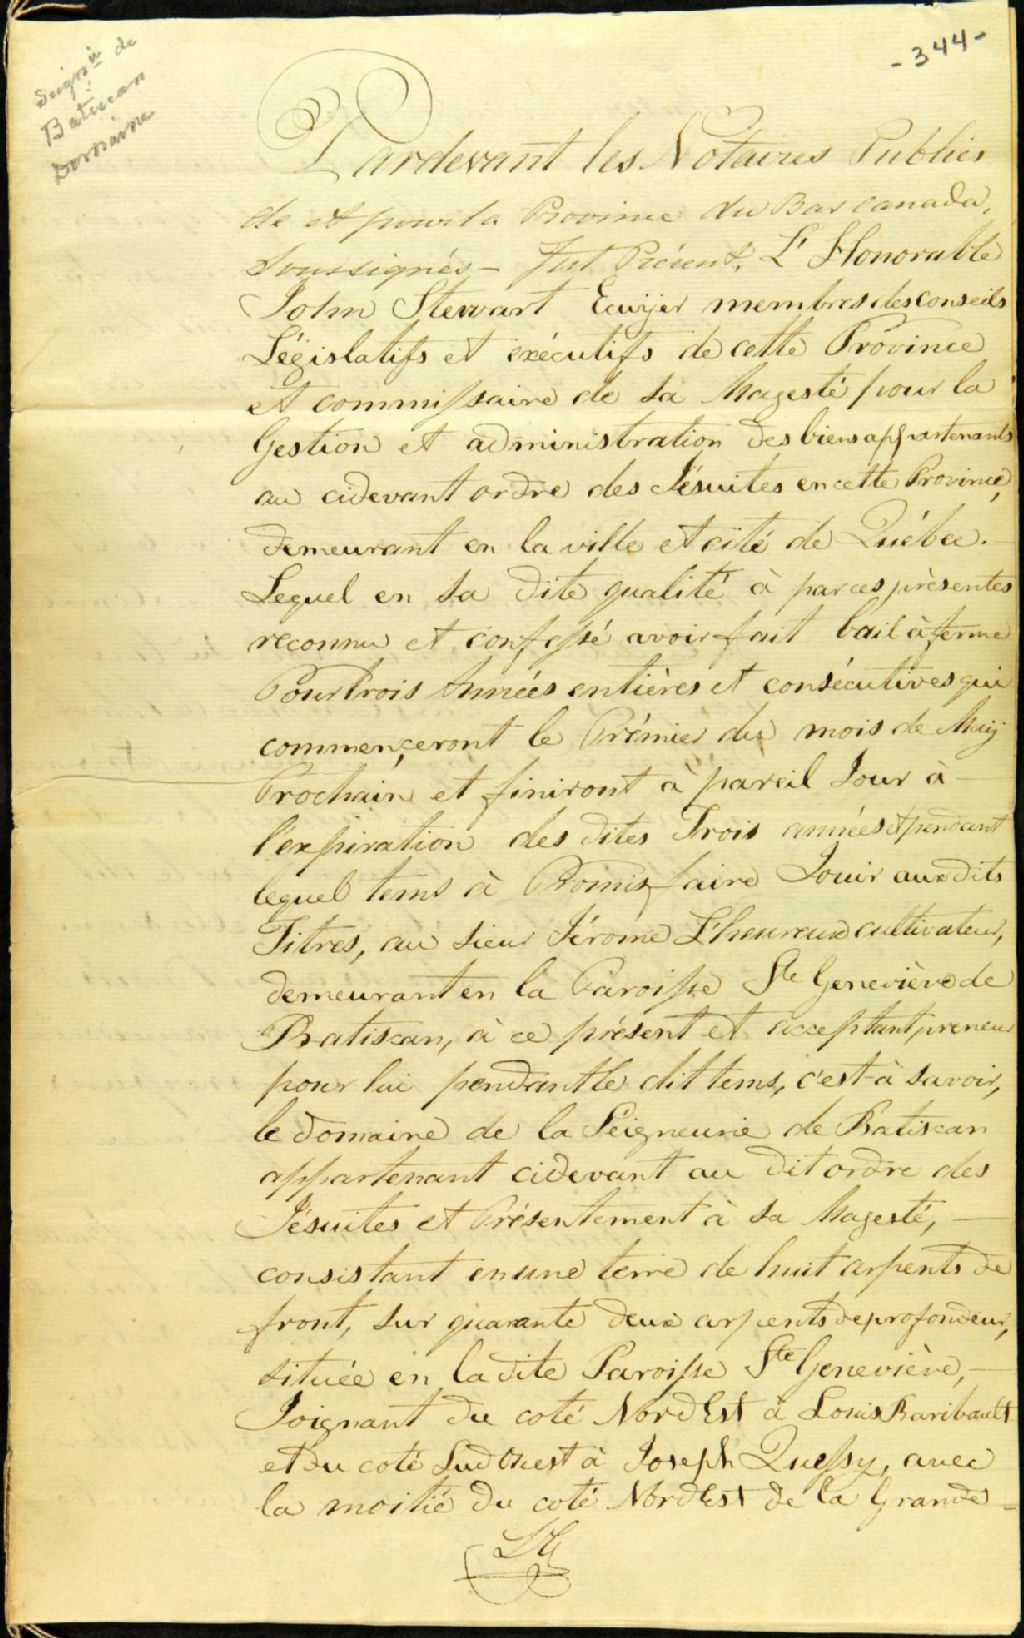 -344-
Seign^ie de
Batiscan
Domaine
Pardevant les Notaires Publics
de et pour la Province du Bas canada,
Soussignés – fut Présent, L'Honorable
John Stewart Ecuÿer membres des conseils
Législatifs et exécutifs de cette Province
et commissaire de Sa Magesté pour la
Gestion et administration des biens appartenants
au cidevant ordre des Jésuites en cette Province,
demeurant en la ville et cité de Québec. –
Lequel en Sa dite qualité à par ces présentes
reconnu et confessé avoir fait bail à ferme
Pour Trois Années entières et consécutives qui
commençeront le Prémier du mois de Maÿ
Prochain, et finiront à pareil Jour à –
l'expiration des dites Trois années et pendant
lequel tems à Promis faire Jouir aux dits
Titres, au Sieur Jérome L'heureux cultivateur,
demeurant en la Paroisse S^te Geneviève de
Batiscan, à ce présent et acceptant preneur
pour lui pendant le dit tems, c'est-à savoir,
le domaine de la Seigneurie de Batiscan
appartenant cidevant au dit ordre des
Jésuites et Présentement à Sa Magesté, –
consistant en une terre de huit arpents de
front, Sur quarante deux arpents de profondeur,
située en la dite Paroisse S^te Geneviève, –
Joignant du coté Nord Est à Louis Baribault
et du coté Sud Ouest à Joseph Quessy, avec
la moitié du coté Nord Est de la Grande –